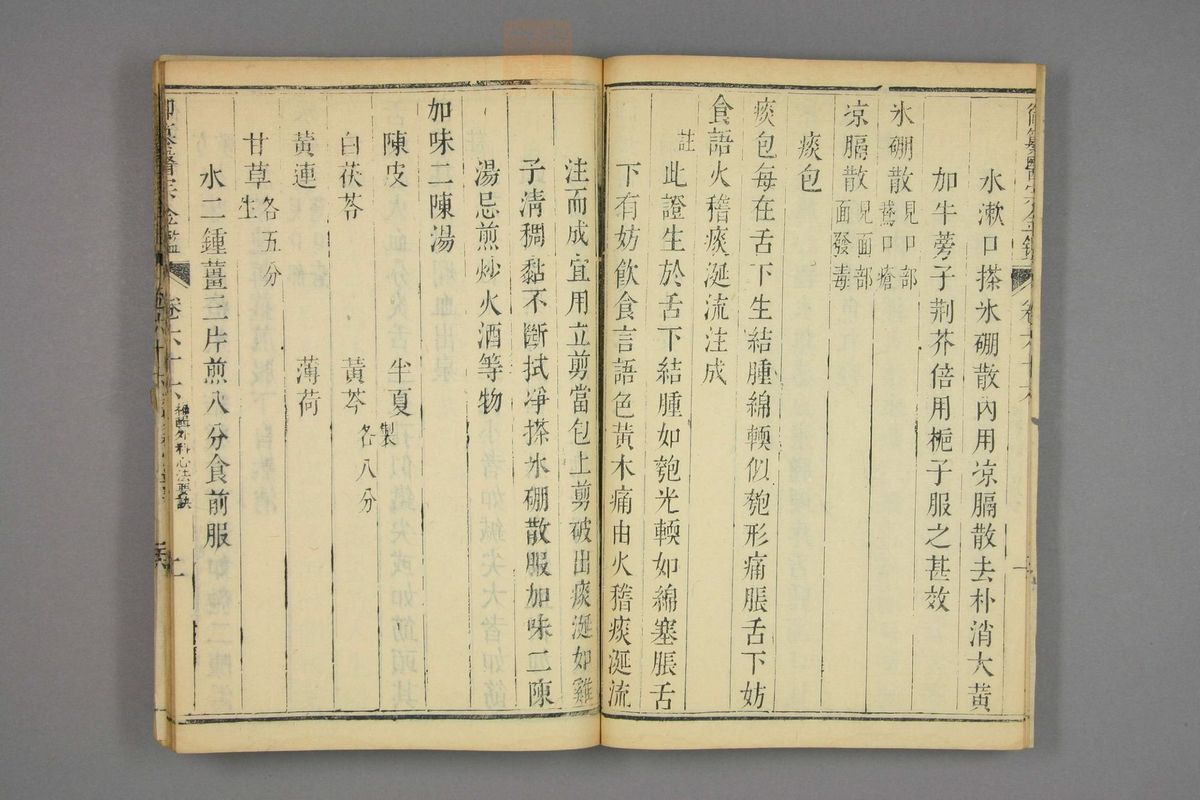 水漱口搽氷硼散內用凉膈散去朴消大黃
加牛蒡子荆芥倍用梔子服之甚效
氷硼散見口部鵞口瘡
凉膈散見面部面發毒
痰包
痰包每在舌下生結腫綿輭似匏形痛脹舌下妨
食語火稽痰涎流注成
註此證生於舌下結腫如匏光輭如綿塞脹舌
下有妨飲食言語色黃木痛由火稽痰涎流
注而成宜用立剪當包上剪破出痰涎如雞
子淸稠黏不斷拭淨搽氷硼散服加味二陳
湯忌煎炒火酒等物
加味二陳湯
陳皮 半夏製
白茯苓 黃芩各八分
黃連 薄荷
甘草生各五分
水二鍾薑三片煎八分食前服
御纂醫宗金鑑 卷六十六 編輯外科心法要訣